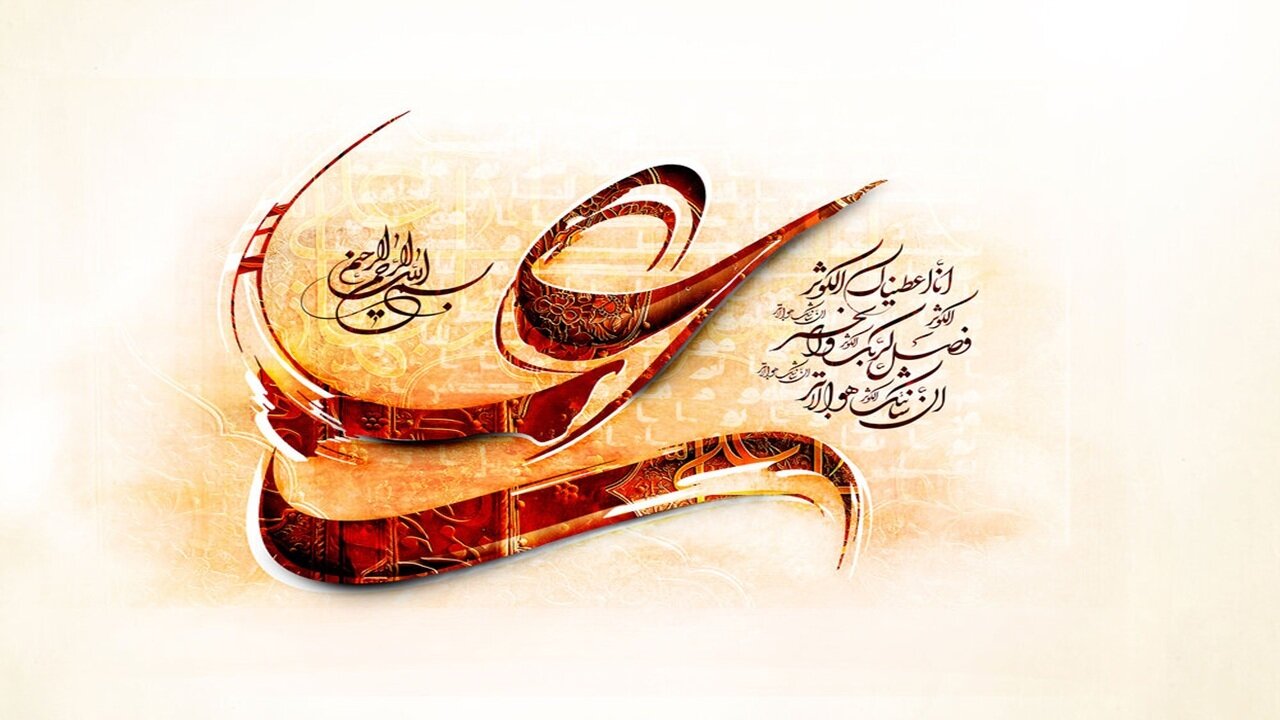 بسم الله الرحمن الرحیم
انا اعطیناک الکوثر
الکوثر
ان شانئک هو الابتر
فصل لربک وانحر
الکوثر
ان شانئک هو الابتر
ان شانئک هو الابتر
الکوثر